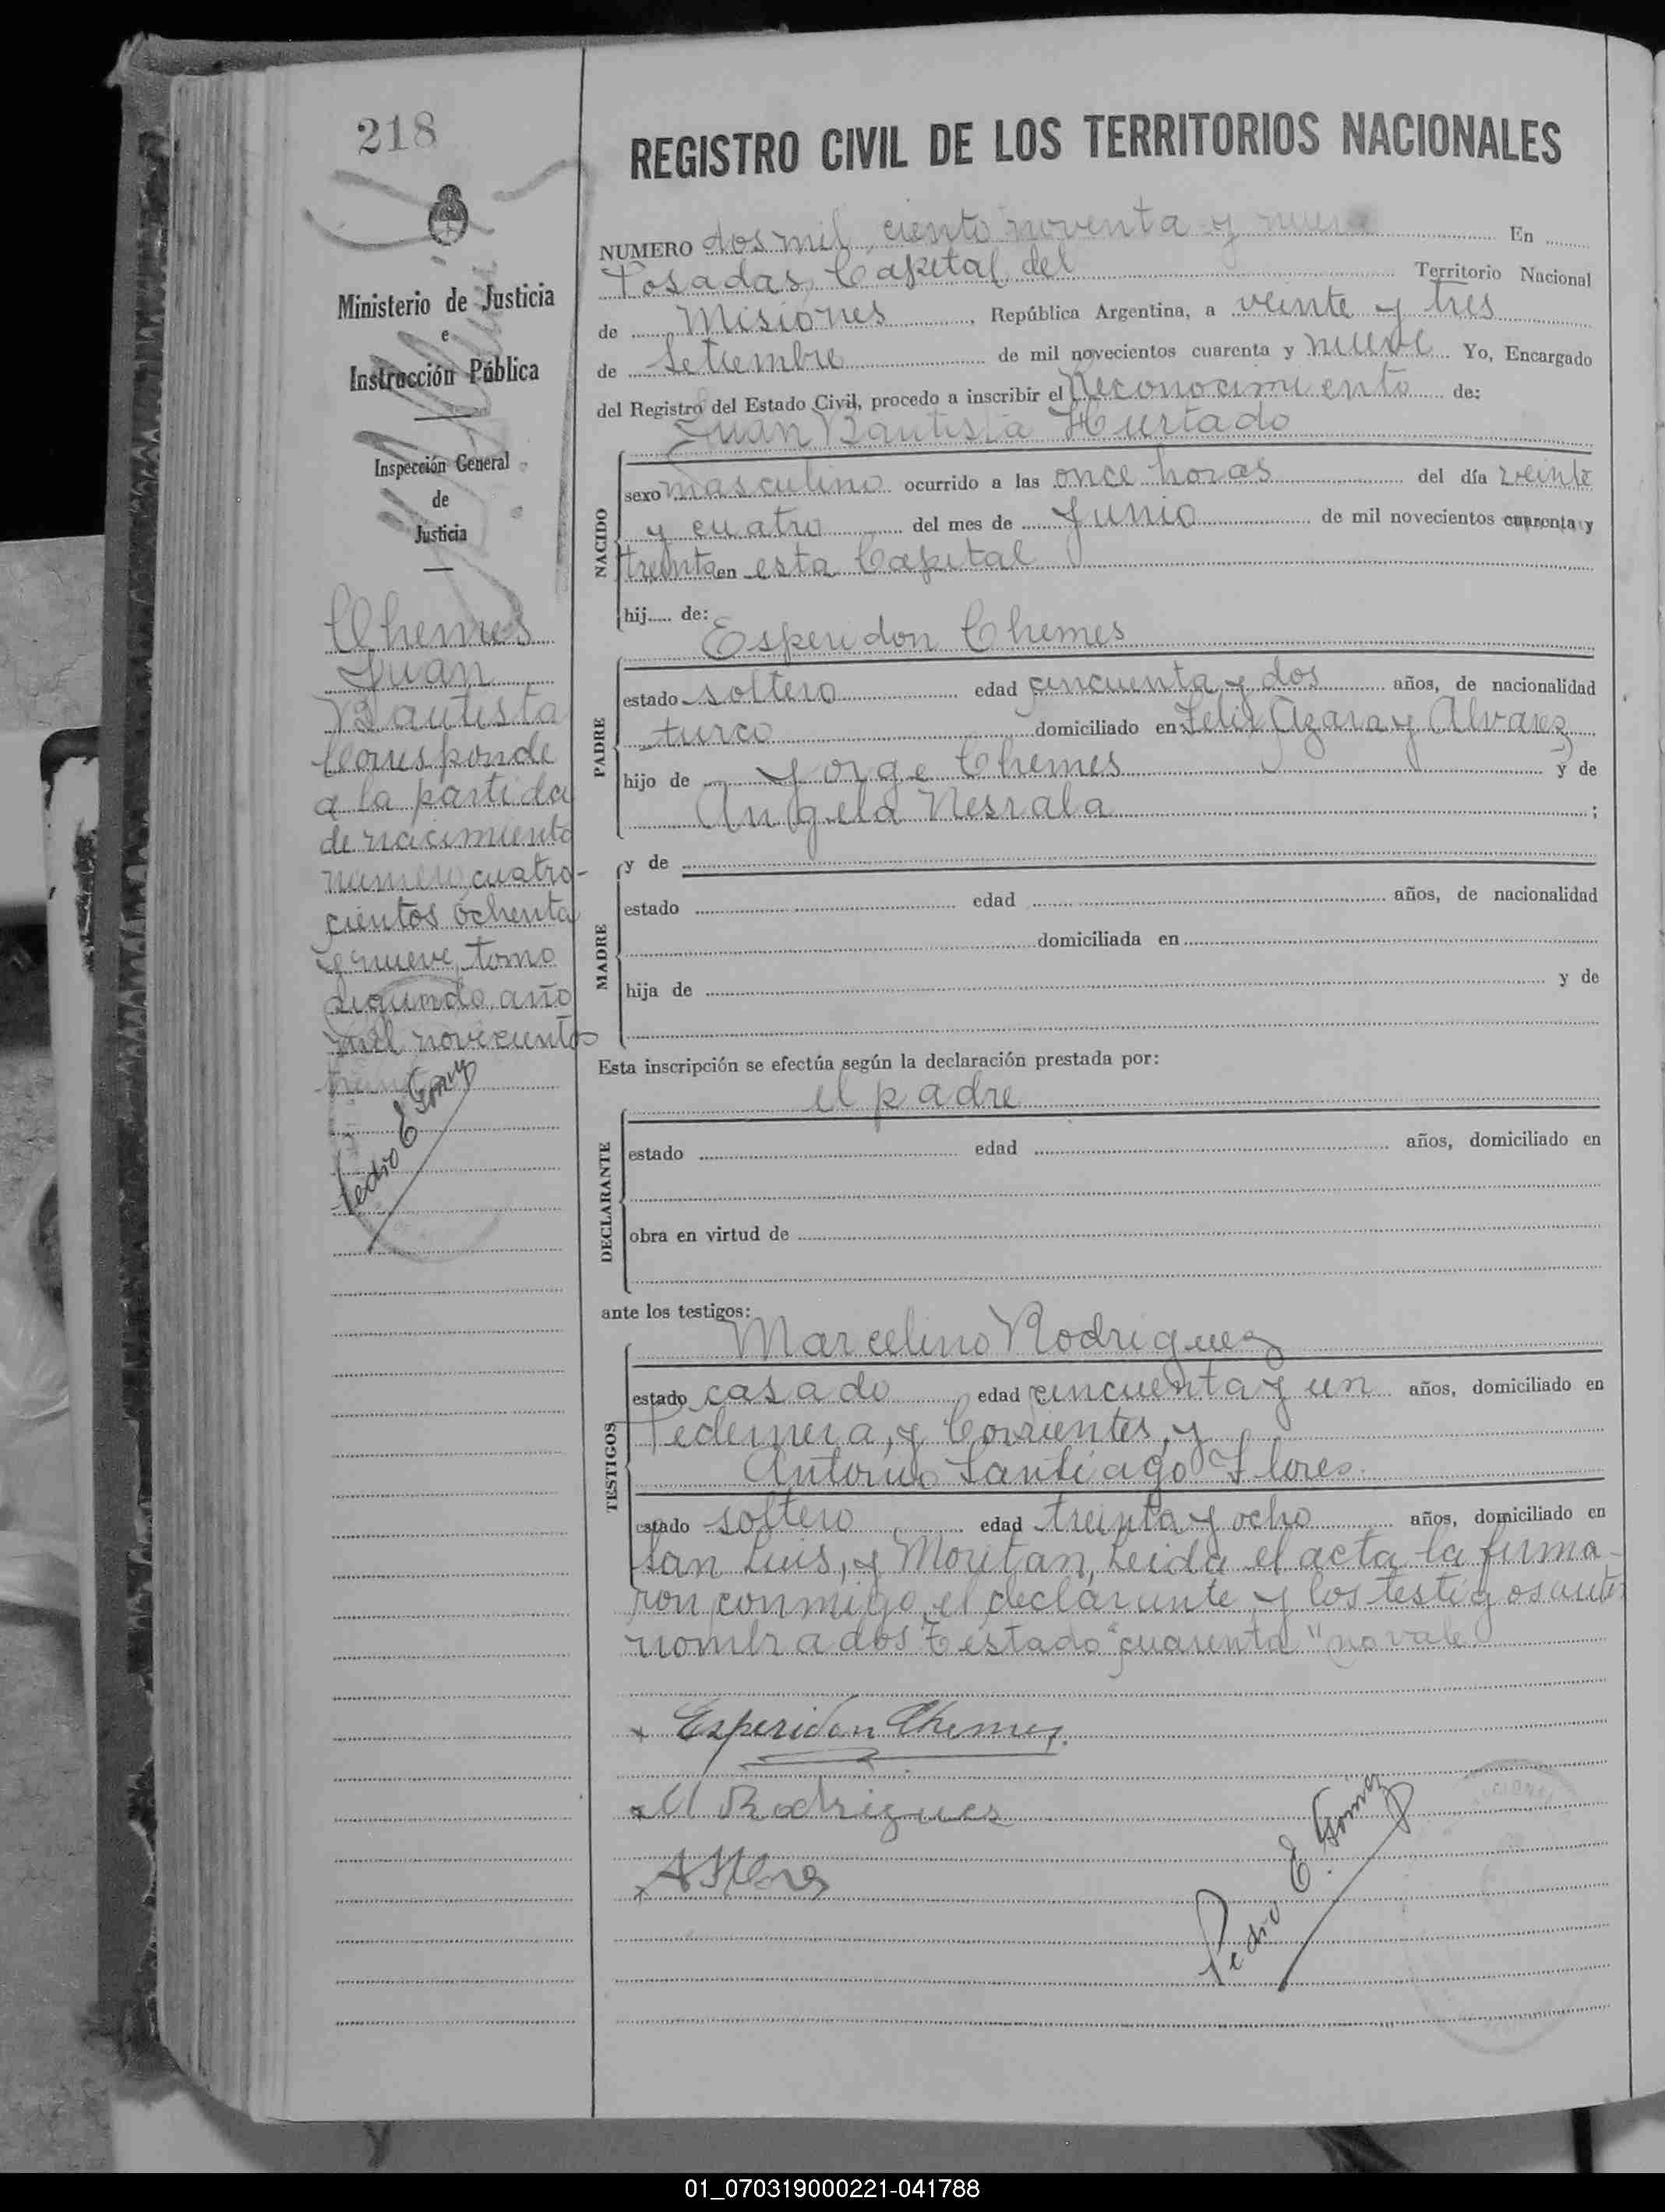 218
Ministerio de Justicia
e
Instrucción Pública
Inspección General
de
Justicia
Chemes
Juan
Bautista
Corresponde
a la partida
de nacimiento
numero cuatro-
cientos ochenta
y nueve, tomo
segundo año
mil novecientos
treinta
Pedro E Gomez
REGISTRO CIVIL DE LOS TERRITORIOS NACIONALES
NUMERO dos mil ciento noventa y nueve En
Posadas Capital del Territorio Nacional
de Misiones, República Argentina, a veinte y tres
de Setiembre de mil novecientos cuarenta y nueve Yo, Encargado
del Registro del Estado Civil, procedo a inscribir el Reconocimiento de:
Juan Bautista Hurtado
NACIDO
sexo masculino ocurrido a las once horas del día veinte
y cuatro del mes de Junio de mil novecientos cuarenta y
treinta en esta Capital
hij..... de:
Esperidon Chemes
PADRE
estado soltero edad cincuenta y dos años, de nacionalidad
turco domiciliado en Felix Azara y Alvarez
hijo de Jorge Chemes y de
Angela Nesrala ;
y de
MADRE
estado edad años, de nacionalidad
domiciliada en
hija de y de
Esta inscripción se efectúa según la declaración prestada por:
el padre
DECLARANTE
estado edad años, domiciliado en
obra en virtud de
ante los testigos:
Marcelino Rodriguez
TESTIGOS
estado casado edad cincuenta y un años, domiciliado en
Pedernera, y Corrientes, y
Antonio Santiago Flores.
estado soltero edad treinta y ocho años, domiciliado en
San Luis, y Moritan, Leida el acta la firma-
ron conmigo, el declarante y los testigos ante
nombrados Testado "cuarenta" no vale
x Esperidon Chemes.
x M Rodrigues
x A S Flores
Pedro E. Gomez
01_070319000221-041788